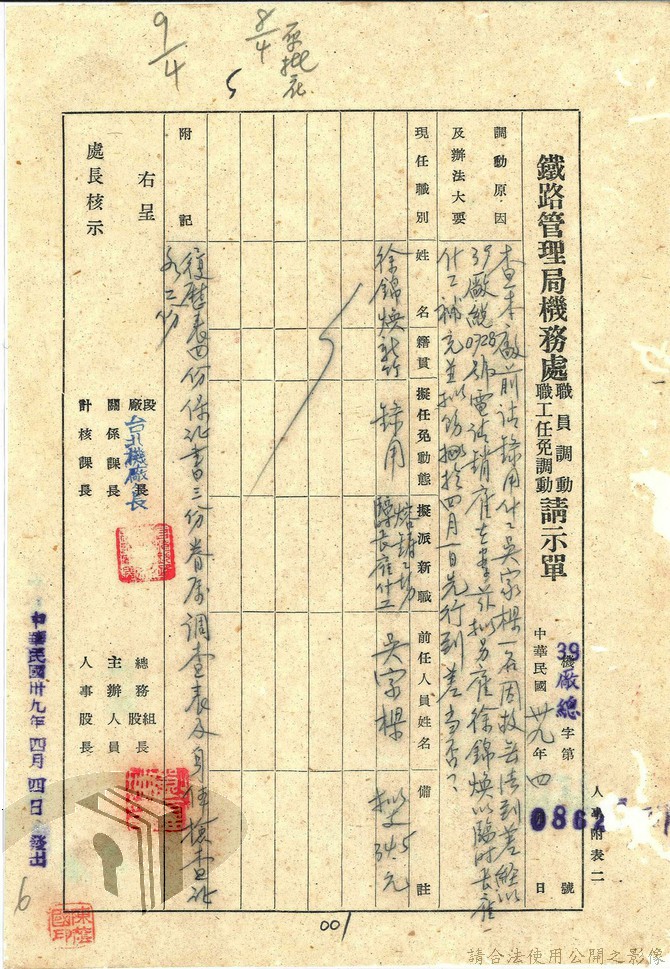 9/4
8/4
鐵路管理局機務處職員調動職工任免調動請示單
人事附表二
39機廠總字第0862號
中華民國卅九年四日
調動原因及辦法大要
查本廠前請錄用什工吳家樑一名因故無法到差經以
39廠總0728號電請銷雇在案茲擬另雇徐錦煥以臨時長雇
什工補充並擬飭被於四月一日先行到差當否?
現任職別
姓名
籍貫
擬任免動態
擬派新職
前任人員姓名
備註
徐錦煥
錄用
臨長雇什工
吳家樑
擬支345元
附記
履歷表四份保証書三份眷屬調查表及身体檢查証
各二份
右呈
處長核示
段廠長
台北機廠長
關係課長
計核課長
總務組股長
主辦人員
人事股長
中華民國卅九年四月四日發出
001
6
請合法使用公開之影像